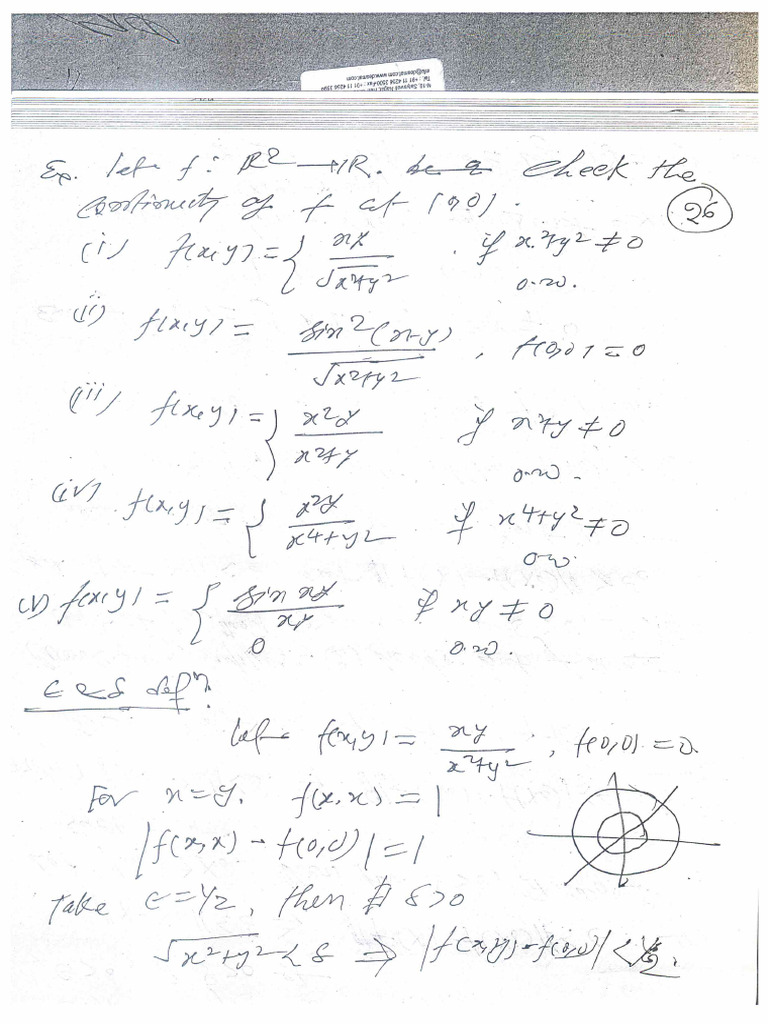 info@desmat.com www.desmat.com
Ex. Let f : R² → R. Check the
continuity of f at (0,0).
26
(i) f(x,y) = { xy / √x²+y² . if x²+y² ≠ 0
o.w.
(ii) f(x,y) = sin²(x-y) / √x²+y² , f(0,0) = 0
(iii) f(x,y) = { x²y / x²+y if x²+y ≠ 0
o.w.
(iv) f(x,y) = { x²y / x⁴+y² if x⁴+y² ≠ 0
o.w.
(v) f(x,y) = { sin xy / xy if xy ≠ 0
0 o.w.
ε & δ defⁿ:
Let f(x,y) = xy / x²+y² , f(0,0) = 0.
For x=y. f(x,x) = 1
|f(x,x) - f(0,0)| = 1
Take ε = 1/2, then ∄ δ>0
√x²+y² < δ ⇒ |f(x,y) - f(0,0)| < 1/2.